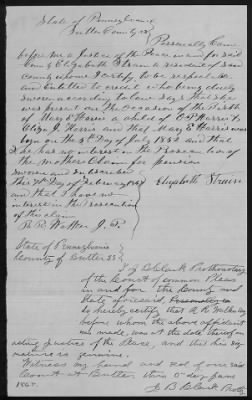 State of Pennsylvania
Butler County SS
Personally Came
before me a Justice of the Peace in and for said
County Elizabeth a resident of said
county whom I certify to be respectable
and entitled to credit who being duly
sworn according to law says that she
was present on the Occasion of the Birth
of Mary E Harris a child of C P Harris &
Eliza J. Harris and that Mary E Harris was
born on the day of July and that
She has no interest in the Prosecution of
the mothers Claim for pension
Sworn and subscribed
this day of February
and that I have no
interest in the prosecution
of this claim
Elizabeth
R. R. Walker J. P.
State of Pennsylvania
County of Butler SS
I J B Clark Prothonotary
of the Court of Common Pleas
in and for the County and
State aforesaid,
do hereby certify that R. R. Walker Esq
before whom the above affidavit
was made, was at the date thereof an
acting Justice of the Peace, and that his sig
nature is genuine.
Witness my hand and seal of our said
Court at Butler, this day
J B Clark Prothy